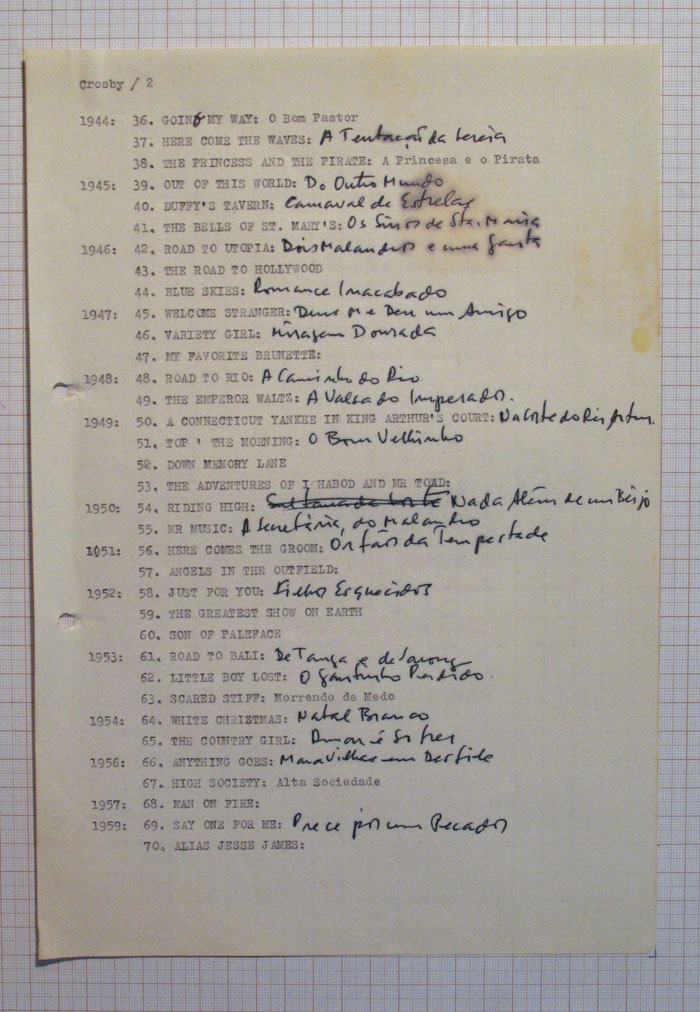 Crosby / 2
1944: 36. GOING MY WAY: O Bom Pastor
37. HERE COME THE WAVES: A Tentação da Sereia
38. THE PRINCESS AND THE PIRATE: A Princesa e o Pirata
1945: 39. OUT OF THIS WORLD: Do Outro Mundo
40. DUFFY'S TAVERN: Carnaval de Estrelas
41. THE BELLS OF ST. MARY'S: Os Sinos de Sta. Maria
1946: 42. ROAD TO UTOPIA: Dois Malandros e uma Garota
43. THE ROAD TO HOLLYWOOD
44. BLUE SKIES: Romance Inacabado
1947: 45. WELCOME STRANGER: Deus Me Deu um Amigo
46. VARIETY GIRL: Miragem Dourada
47. MY FAVORITE BRUNETTE:
1948: 48. ROAD TO RIO: A Caminho do Rio
49. THE EMPEROR WALTZ: A Valsa do Imperador.
1949: 50. A CONNECTICUT YANKEE IN KING ARTHUR'S COURT: Na Corte do Rei Artur.
51. TOP ' THE MORNING: O Bom Velhinho
52. DOWN MEMORY LANE
53. THE ADVENTURES OF ICHABOD AND MR TOAD:
1950: 54. RIDING HIGH: Nada Além de um Beijo
55. MR MUSIC: A Secretária do Malandro
1951: 56. HERE COMES THR GROOM: Orfãos da Tempestade
57. ANGELS IN THE OUTFIELD:
1952: 58. JUST FOR YOU: Filhos Esquecidos
59. THE GREATEST SHOW ON EARTH
60. SON OF PALEFACE
1953: 61. ROAD TO BALI: De Tanga e de Sarong
62. LITTLE BOY LOST: O Garotinho Perdido.
63. SCARED STIFF: Morrendo de Medo
1954: 64. WHITE CHRISTMAS: Natal Branco
65. THE COUNTRY GIRL: Amar é Sofrer
1956: 66. ANYTHING GOES: Maravilhas em Desfile
67. HIGH SOCIETY: Alta Sociedade
1957: 68. MAN ON FIRE:
1959: 69. SAY ONE FOR ME: Prece por um Pecador
70. ALIAS JESSE JAMES: